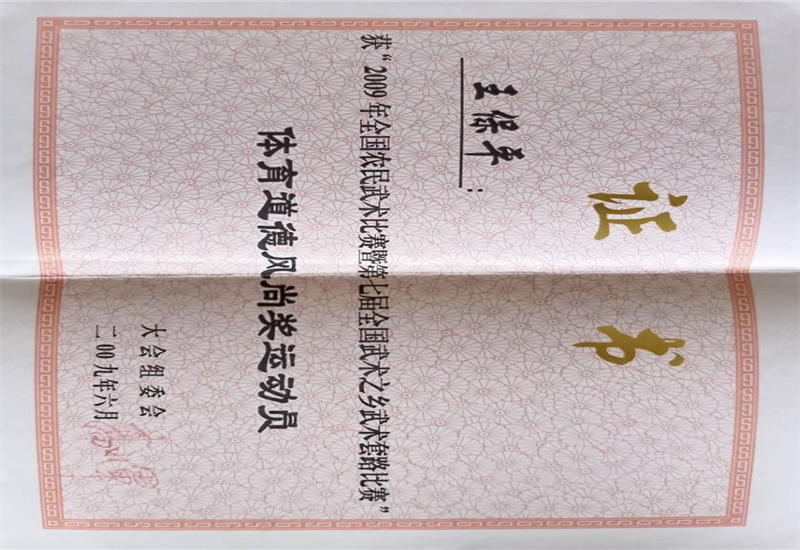 证书
王保平：
获“2009年全国农民武术比赛暨第七届全国武术之乡武术套路比赛”
体育道德风尚奖运动员
大会组委会
二00九年六月